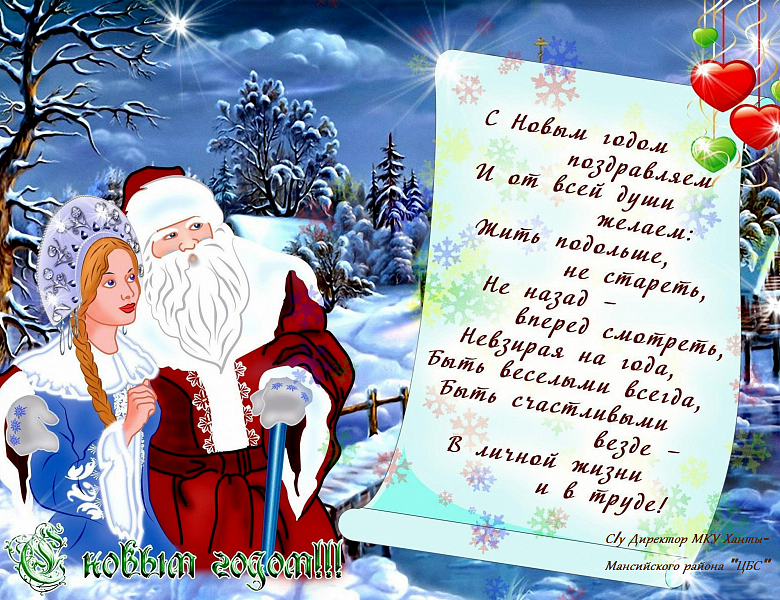 С Новым годом
поздравляем
И от всей души
желаем:
Жить подольше,
не стареть,
Не назад –
вперед смотреть,
Невзирая на года,
Быть веселыми всегда,
Быть счастливыми
везде –
В личной жизни
и в труде!
С/у Директор МКУ Ханты-
Мансийского района "ЦБС"
С новым годом!!!